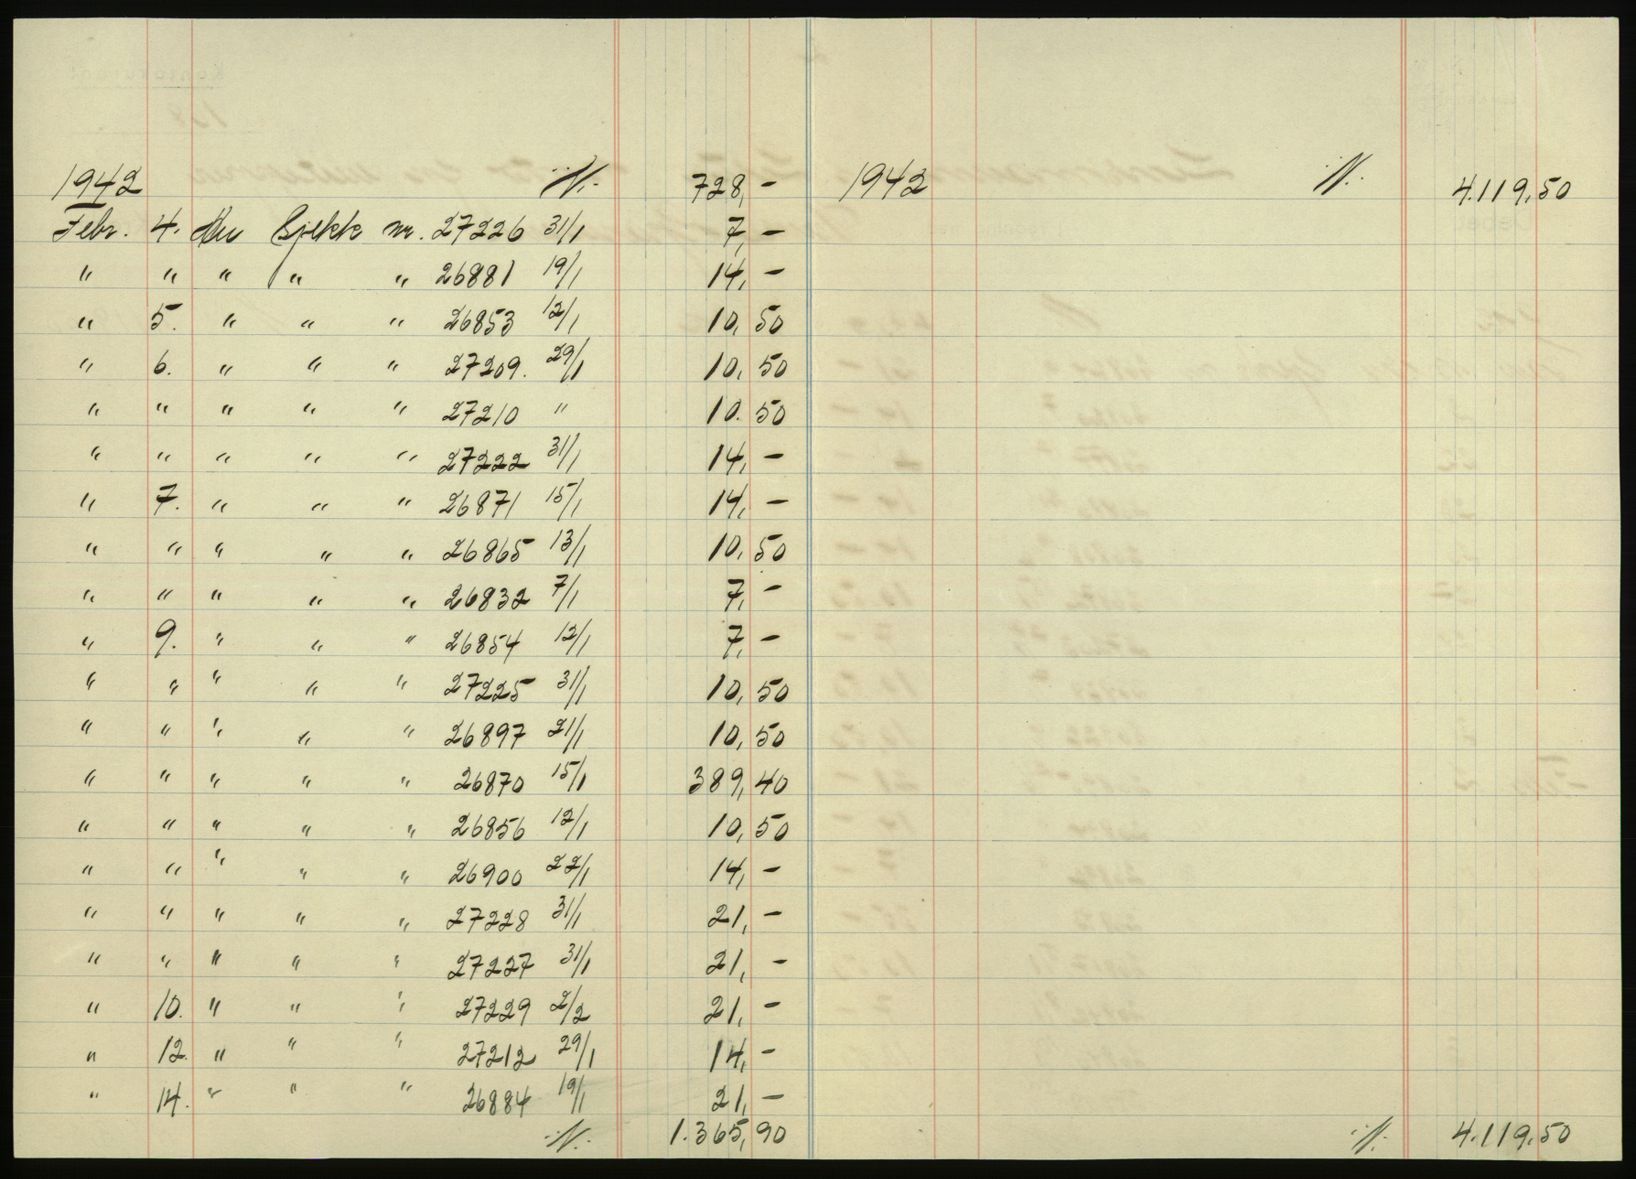 1942 ./. 728,-
Febr. 4. An Sjekk nr. 27226 31/1 7,-
" " " " " 26881 19/1 14,-
" 5. " " " 26853 12/1 10,50
" 6. " " " 27209. 29/1 10,50
" " " " " 27210 " 10.50
" " " " " 27222 31/1 14,-
" 7. " " " 26871 15/1 14,-
" " " " " 26865 13/1 10,50
" " " " " 26832 7/1 7,-
" 9. " " " 26854 12/1 7,-
" " " " " 27225 31/1 10,50
" " " " " 26897 21/1 10,50
" " " " " 26870 15/1 389,40
" " " " " 26856 12/1 10,50
" " " " " 26900 22/1 14,-
" " " " " 27228 31/1 21,-
" " " " " 27227 31/1 21,-
" 10. " " " 27229 2/2 21,-
" 12. " " " 27212 29/1 14,-
" 14. " " " 26884 19/1 21,-
./. 1.365,90
1942 ./. 4.119,50
./. 4.119,50